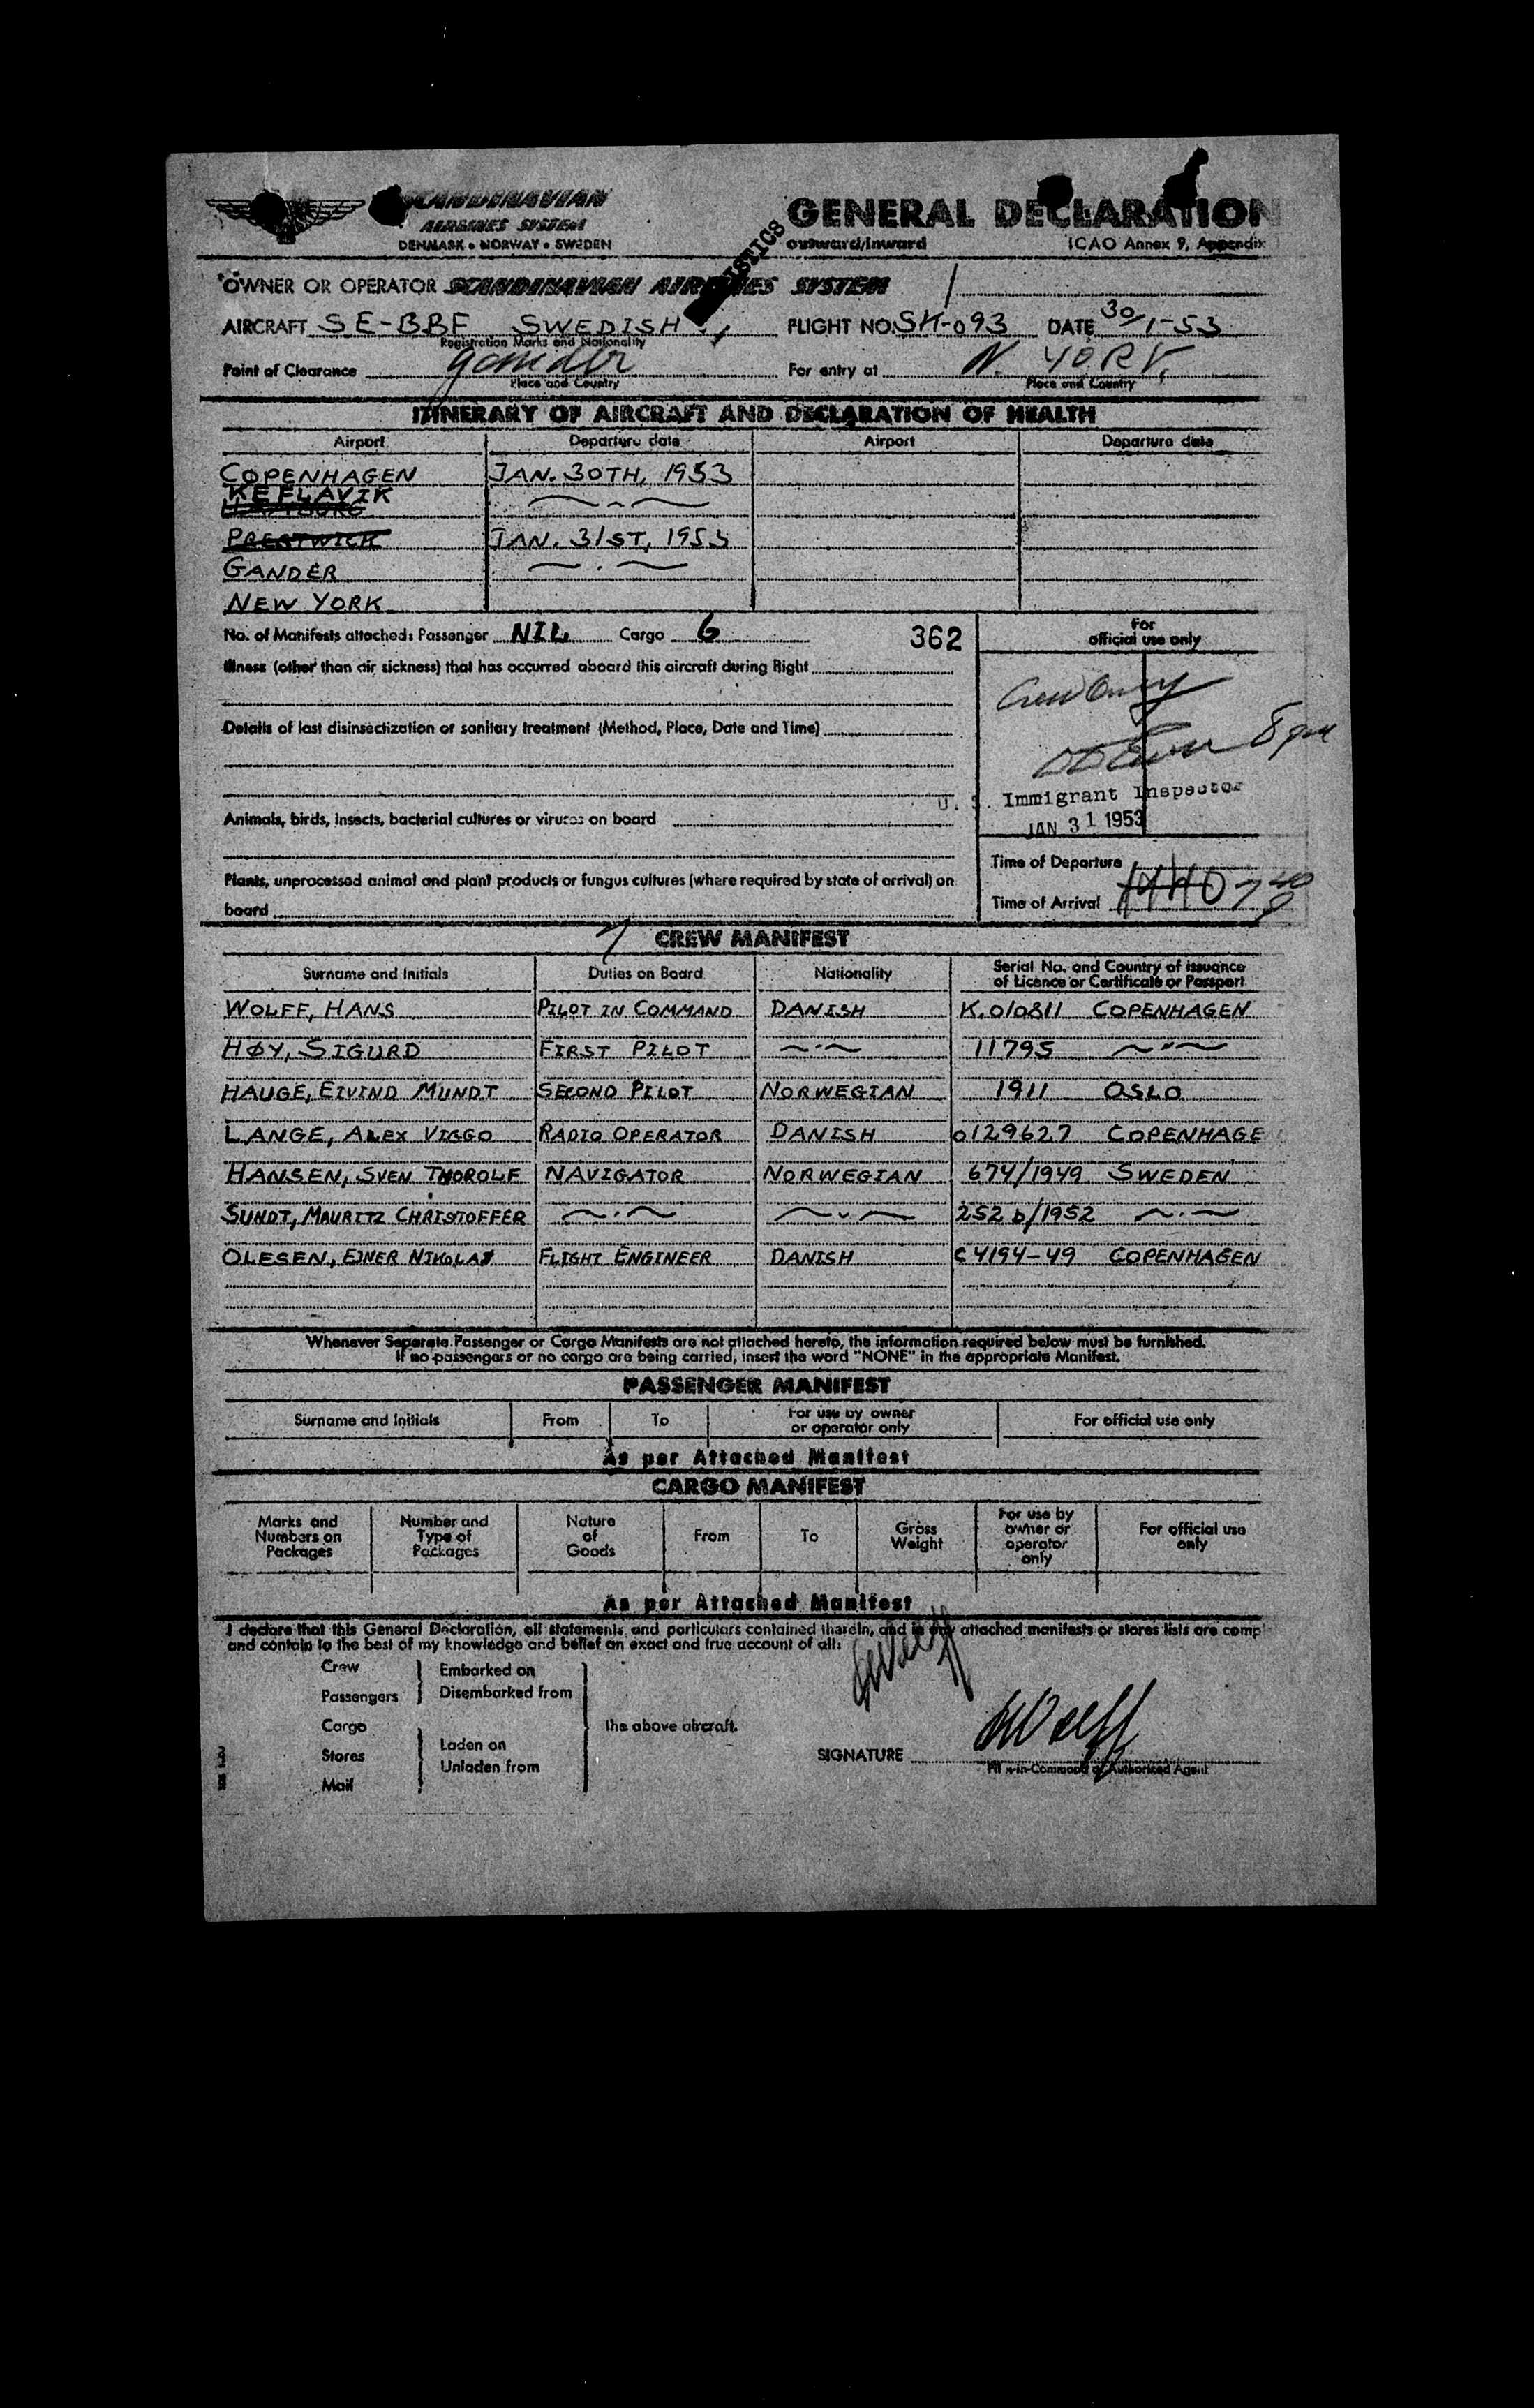 SCANDINAVIAN
AIRLINES SYSTEM
DENMARK • NORWAY • SWEDEN
GENERAL DECLARATION
outward/inward
ICAO Annex 9, Appendix
OWNER OR OPERATOR SCANDINAVIAN AIRLINES SYSTEM
AIRCRAFT SE-BBF SWEDISH FLIGHT NO: SK-093 DATE 30/1-53
Registration Marks and Nationality
Point of Clearance Gander For entry at N. YORK
Place and Country Place and Country
ITINERARY OF AIRCRAFT AND DECLARATION OF HEALTH
Airport Departure date Airport Departure date
COPENHAGEN JAN. 30TH, 1953
KEFLAVIK
PRESTWICK JAN. 31ST, 1953
GANDER
NEW YORK
No. of Manifests attached: Passenger NIL Cargo 6 362
For
official use only
Illness (other than air sickness) that has occurred aboard this aircraft during flight
Crew Only
Details of last disinsectization or sanitary treatment (Method, Place, Date and Time)
8 pm
U. S. Immigrant Inspector
JAN 31 1953
Animals, birds, insects, bacterial cultures or viruses on board
Time of Departure
Plants, unprocessed animal and plant products or fungus cultures (where required by state of arrival) on
board
Time of Arrival 7 40
CREW MANIFEST
Surname and Initials Duties on Board Nationality Serial No. and Country of issuance
of Licence or Certificate or Passport
WOLFF, HANS PILOT IN COMMAND DANISH K.010811 COPENHAGEN
HØY, SIGURD FIRST PILOT 11795
HAUGE, EIVIND MUNDT SECOND PILOT NORWEGIAN 1911 OSLO
LANGE, ALEX VIGGO RADIO OPERATOR DANISH 0129627 COPENHAGE
HANSEN, SVEN THOROLF NAVIGATOR NORWEGIAN 674/1949 SWEDEN
SUNDT, MAURITZ CHRISTOFFER 252 b/1952
OLESEN, EJNER NIKOLAJ FLIGHT ENGINEER DANISH C4194-49 COPENHAGEN
Whenever Seperate Passenger or Cargo Manifests are not attached hereto, the information required below must be furnished.
If no passengers or no cargo are being carried, insert the word "NONE" in the appropriate Manifest.
PASSENGER MANIFEST
Surname and Initials From To For use by owner
or operator only For official use only
As per Attached Manifest
CARGO MANIFEST
Marks and
Numbers on
Packages
Number and
Type of
Packages
Nature
of
Goods
From To Gross
Weight
For use by
owner or
operator
only
For official use
only
As per Attached Manifest
I declare that this General Declaration, all statements and particulars contained therein, and in any attached manifests or stores lists are comp
and contain to the best of my knowledge and belief an exact and true account of all:
Crew
Passengers
Cargo
Stores
Mail
Embarked on
Disembarked from
Laden on
Unladen from
the above aircraft.
HWolff
SIGNATURE HWolff
Pilot-in-Command or Authorized Agent